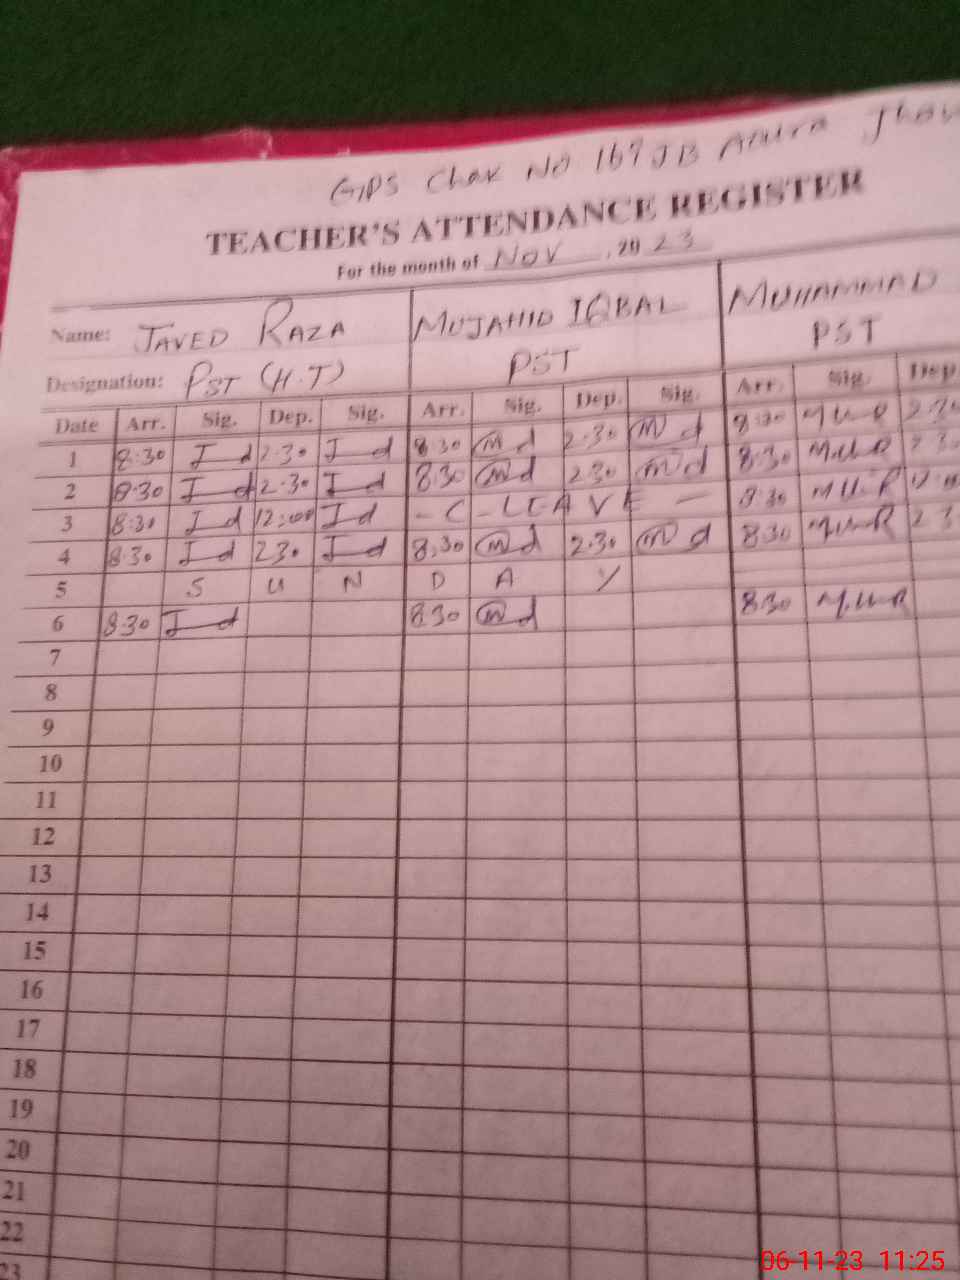 GPS Chak No 167 JB
TEACHER'S ATTENDANCE REGISTER
For the month of Nov, 2023
Name: JAVED RAZA MUJAHID IQBAL MUHAMMAD
Designation: PST (H.T) PST PST
Date Arr. Sig. Dep. Sig. Arr. Sig. Dep. Sig. Arr. Sig. Dep.
1 8:30 J d 2:30 J d 8:30 m d 2:30 m d 8:30 M.U.R
2 8:30 J d 2:30 J d 8:30 m d 2:30 m d 8:30 M.U.R
3 8:30 J d 12:00 J d - C - LEAVE - 8:30 M.U.R
4 8:30 J d 2:30 J d 8:30 m d 2:30 m d 8:30 M.U.R
5 S U N D A Y
6 8:30 J d 8:30 m d 8:30 M.U.R
7
8
9
10
11
12
13
14
15
16
17
18
19
20
21
22
23
06-11-23 11:25